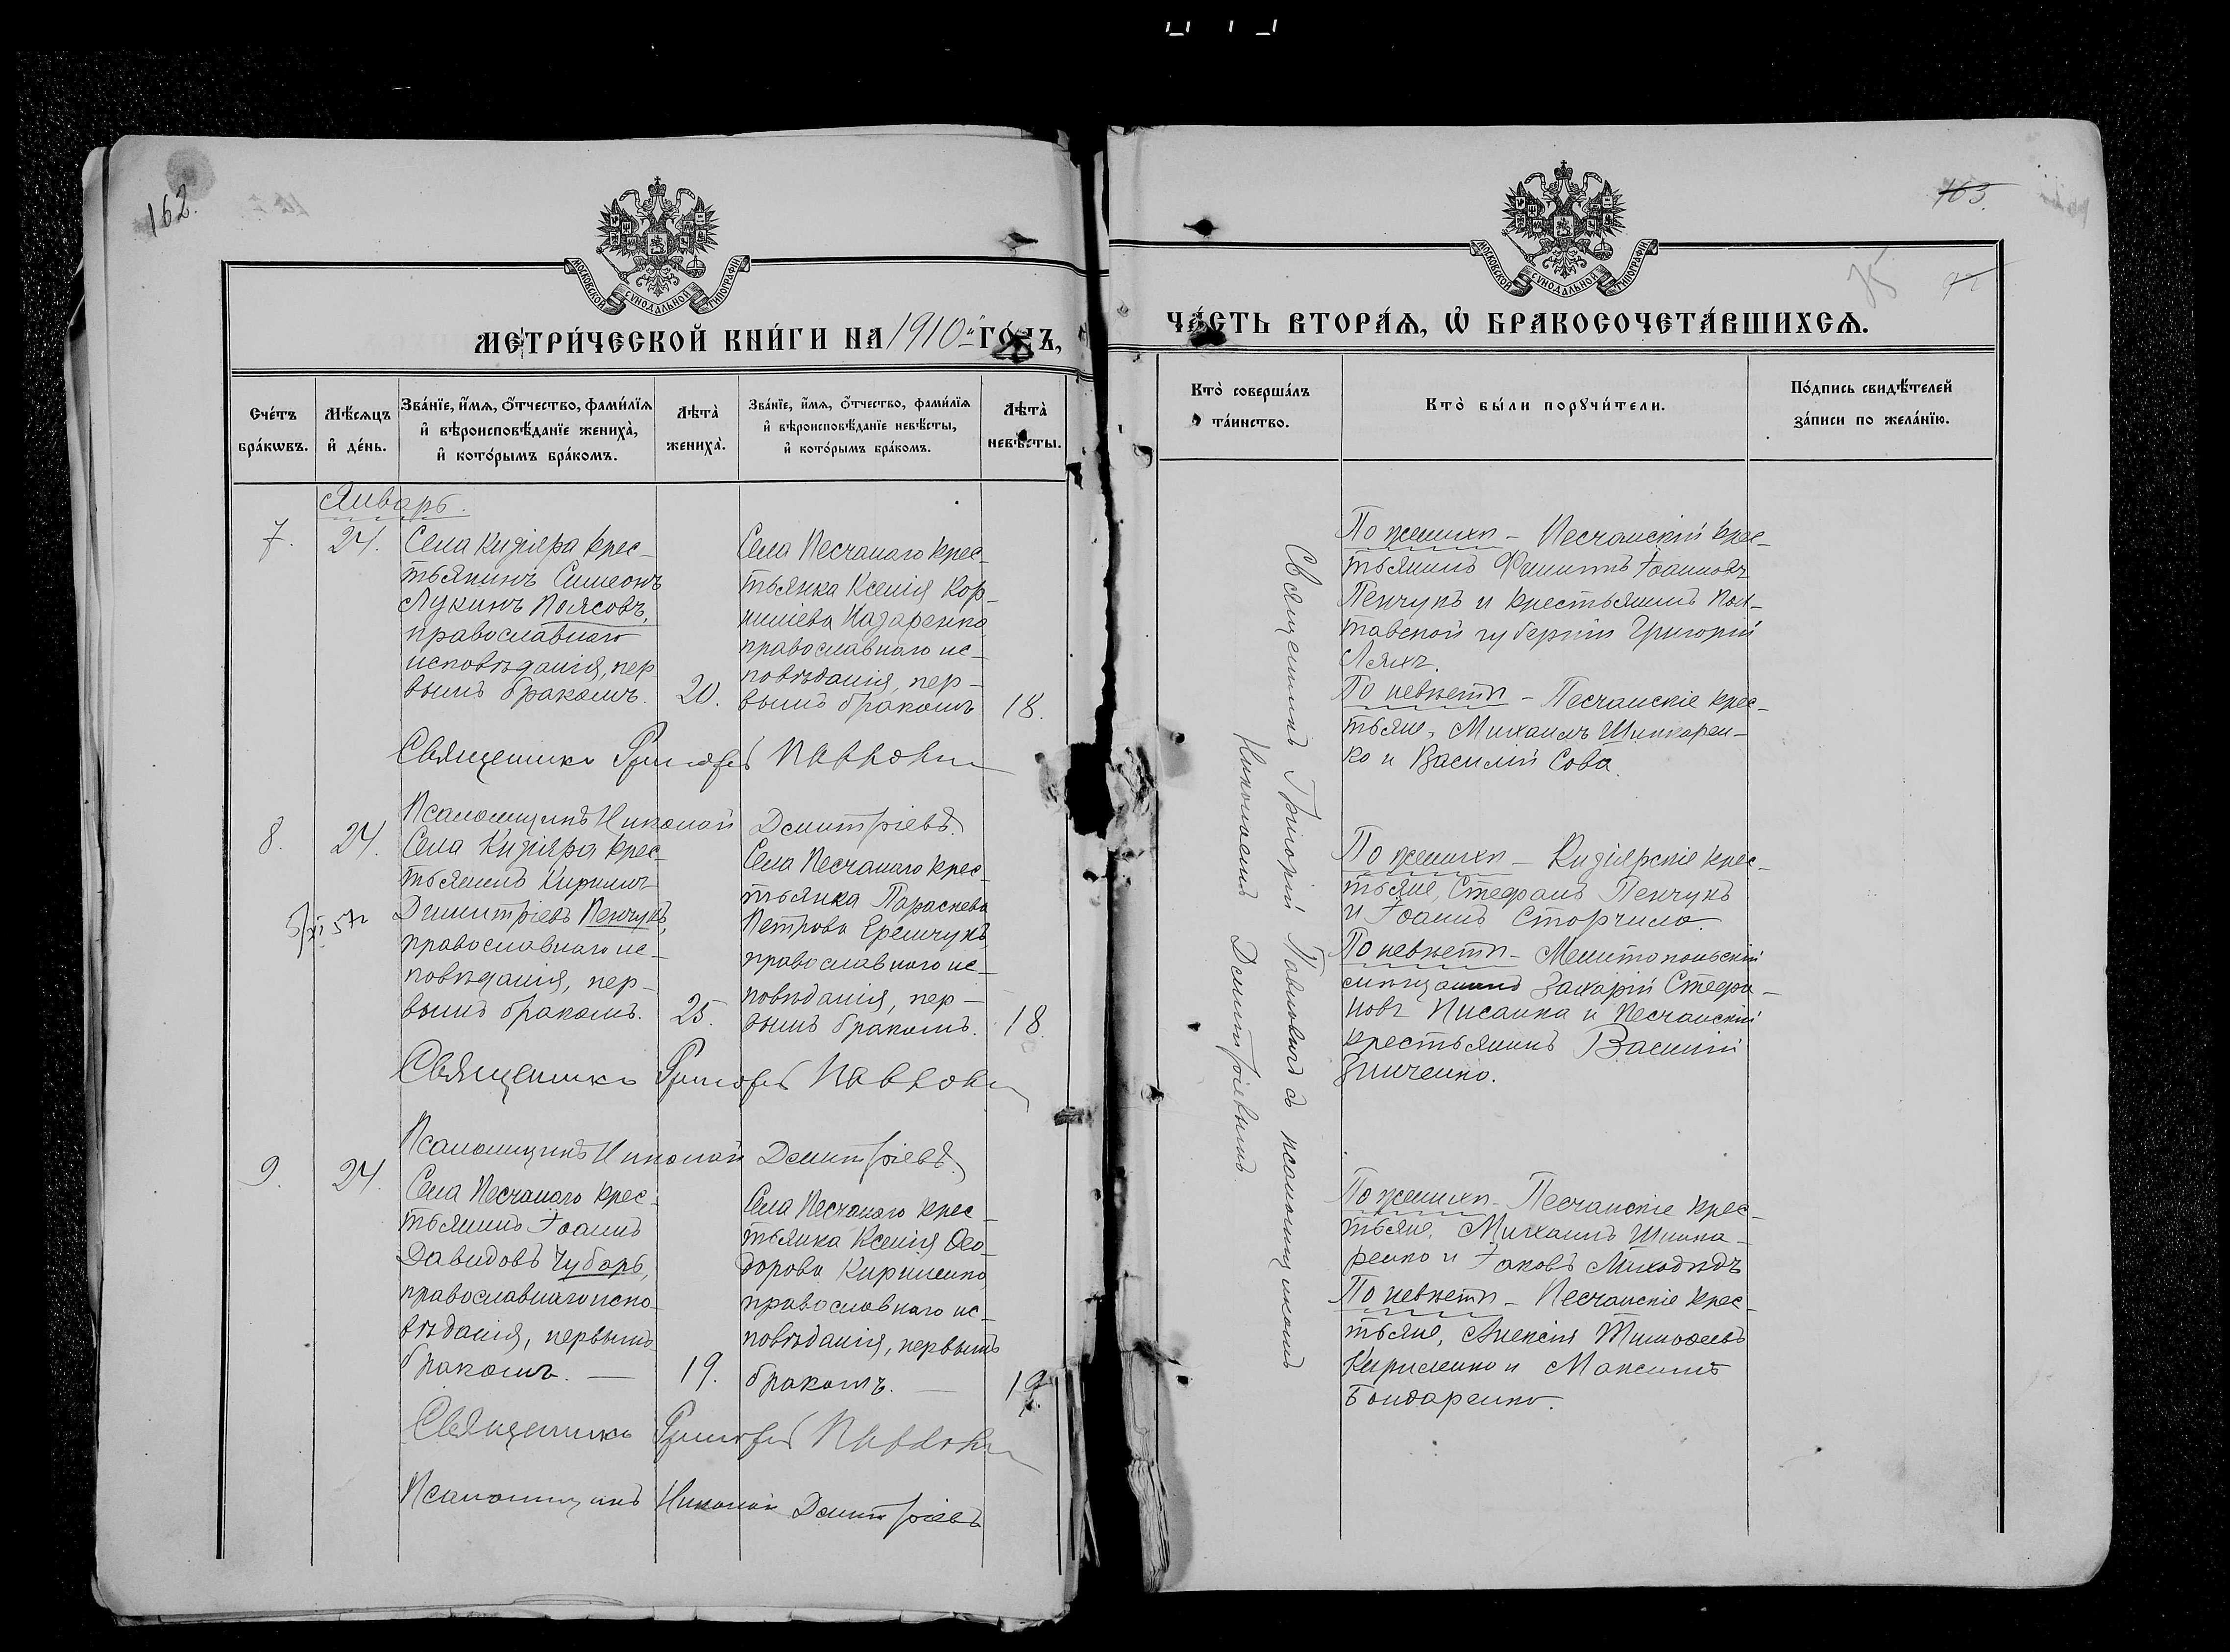 162.
МОСКОВСКОЙ СѴНОДАЛЬНОЙ ТИПОГРАФІИ
МЕТРИ́ЧЕСКОЙ КНИ́ГИ НА 1910й ГОДЪ,
Сче́тъ бра́кѡвъ.
Мѣ́сяцъ и҆ де́нь.
Зва́нїе, и҆́мѧ, ѻ҆́тчество, фами́лїѧ
и҆ вѣроисповѣ́данїе жениха̀,
и҆ кото́рымъ бра́комъ.
Лѣта̀ жениха̀.
Зва́нїе, и҆́мѧ, ѻ҆́тчество, фами́лїѧ
и҆ вѣроисповѣ́данїе невѣ́сты,
и҆ кото́рымъ бра́комъ.
Лѣта̀ невѣ́сты.
Январь.
7.
24.
Села Кизіяра крес-
тьянинъ Симеонъ
Лукинъ Поясовъ,
православнаго
исповѣданія, пер
вымъ бракомъ.
20.
Села Песчанаго крес-
тьянка Ксенія Кор-
ниліева Назаренко
православнаго ис-
повѣданія, пер-
вымъ бракомъ
18.
Священникъ Григорій Павлович
Псаломщикъ Николай Дмитріевъ.
8.
24.
Села Кизіяра крес-
тьянинъ Кириллъ
Димитріевъ Пенчукъ,
православнаго ис-
повѣданія, пер-
вымъ бракомъ.
25.
Села Песчанаго крес-
тьянка Параскева
Петрова Еремчукъ,
православнаго ис-
повѣданія, пер-
вымъ бракомъ.
18.
Священникъ Григорій Павлович
Псаломщикъ Николай Дмитріевъ.
9.
24.
Села Песчанаго крес-
тьянинъ Іоаннъ
Давидовъ Чубарь,
православнаго испо-
вѣданія, первымъ
бракомъ. —
19.
Села Песчанаго крес-
тьянка Ксенія Ѳео-
дорова Кириленко,
православнаго ис-
повѣданія, первымъ
бракомъ. —
19.
Священникъ Григорій Павлович
Псаломщикъ Николай Дмитріевъ
163.
МОСКОВСКОЙ СѴНОДАЛЬНОЙ ТИПОГРАФІИ
ЧА́СТЬ ВТОРА́Ѧ, Ѡ҆ БРАКОСОЧЕТА́ВШИХСѦ.
Кто̀ соверша́лъ
та́инство.
Кто̀ бы́ли порꙋчи́тели.
По́дпись свидѣ́телей
за́писи по жела́нїю.
Священникъ Григорій Павловичъ съ псаломщикомъ
Николаемъ Дмитріевымъ.
По женихѣ - Песчанскій крес-
тьянинъ Филиппъ Іоанновъ
Пенчукъ и крестьянинъ Пол-
тавской губерніи Григорій
Ляхъ.
По невѣстѣ - Песчанскіе крес-
тьяне, Михаилъ Шинкарен-
ко и Василій Сова.
По женихѣ - Кизіярскіе крес-
тьяне, Стефанъ Пенчукъ
и Іоаннъ Сторчило.
По невѣстѣ - Мелитопольскій
мѣщанинъ Захарій Стефа-
новъ Писанка и Песчанскій
крестьянинъ Василій
Зинченко.
По женихѣ - Песчанскіе крес-
тьяне, Михаилъ Шинка-
ренко и Іаковъ Лиходѣдъ
По невѣстѣ - Песчанскіе крес-
тьяне, Алексій Тимоѳеевъ
Кириленко и Максимъ
Бондаренко.